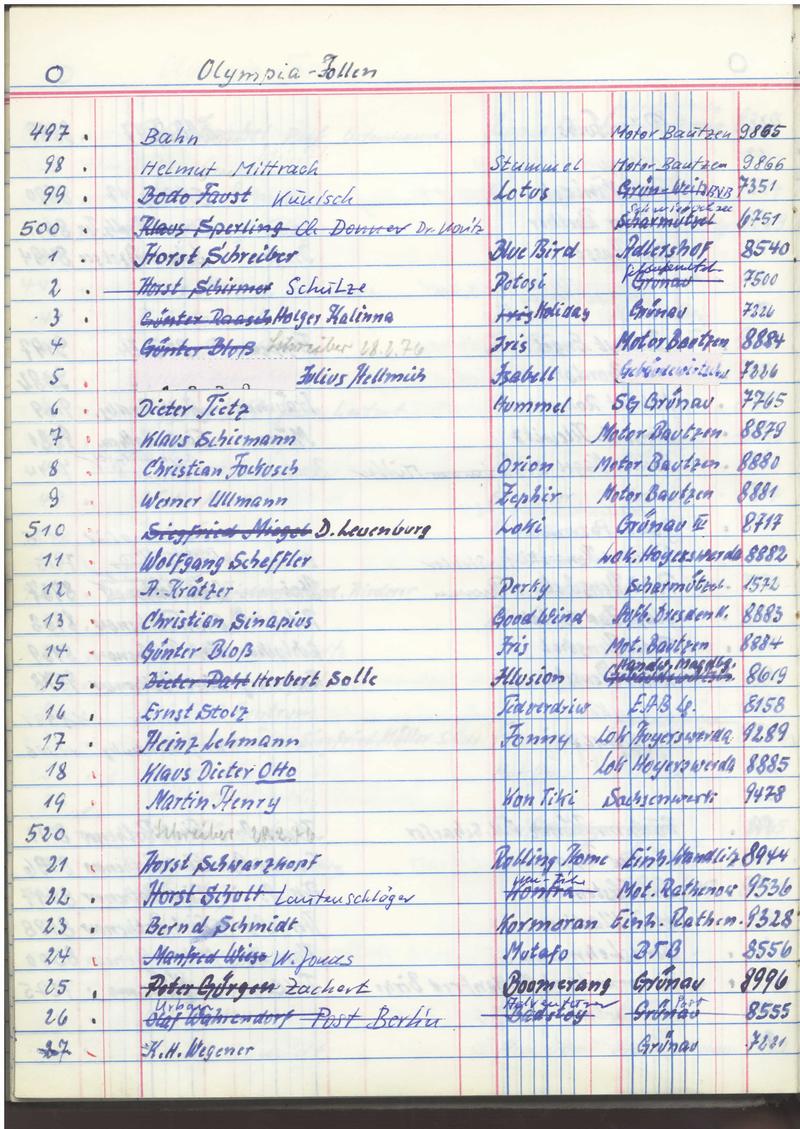 O Olympia-Jollen
497 . Bahn Motor Bautzen 9865
98 . Helmut Mittrach Stummel Motor Bautzen 9866
99 . Bodo Faust Kunisch Lotus Grün-Weiß 7351
500 . Klaus Sperling Ch Donner Dr. Moritz Scharmützel 6751
1 . Horst Schreiber Blue Bird Adlershof 8540
2 . Horst Schirmer Schulze Potosi Grünau 7500
3 . Günter Raasch Holger Kalinna Iris Holiday Grünau 7226
4 . Günter Bloß Schreiber 28.2.76 Iris Motor Bautzen 8884
5 . Julius Hellmich Isabell 7226
6 . Dieter Tietz Hummel SG Grünau 7765
7 . Klaus Schiemann Motor Bautzen 8879
8 . Christian Jockusch Orion Motor Bautzen 8880
9 . Werner Ullmann Zephir Motor Bautzen 8881
510 . Siegfried Miegel D. Leuenburg Loki Grünau III 8717
11 . Wolfgang Scheffler Lok. Hoyerswerda 8882
12 . A. Krätzer Perky Scharmützel. 1572
13 . Christian Sinapius Good Wind Aufb. Dresden 8883
14 . Günter Bloß Iris Mot. Bautzen 8884
15 . Dieter Herbert Solle Illusion Handw. Magdbg. 8619
16 . Ernst Stolz Tidverdriw EAB 8158
17 . Heinz Lehmann Jonny Lok Hoyerswerda 9289
18 . Klaus Dieter Otto Lok Hoyerswerda 8885
19 . Martin Henry Kon Tiki Sachsenwerk 9478
520 Schreiber 28.2.76
21 . Horst Schwarzkopf Rolling Home Einh. Wandlitz 8944
22 . Horst Schult Lautenschläger Mot. Rathenow 9536
23 . Bernd Schmidt Kormoran Einh. Rathen. 9328
24 . Manfred Wiese W. Jonas Mutafo BTB 8556
25 . Peter Görgen Zachert Boomerang Grünau 8996
Urban Adventurer Post
26 . Olaf Wahrendorf Post Berlin Grünau 8555
27 . K.H. Wegener Grünau 7221